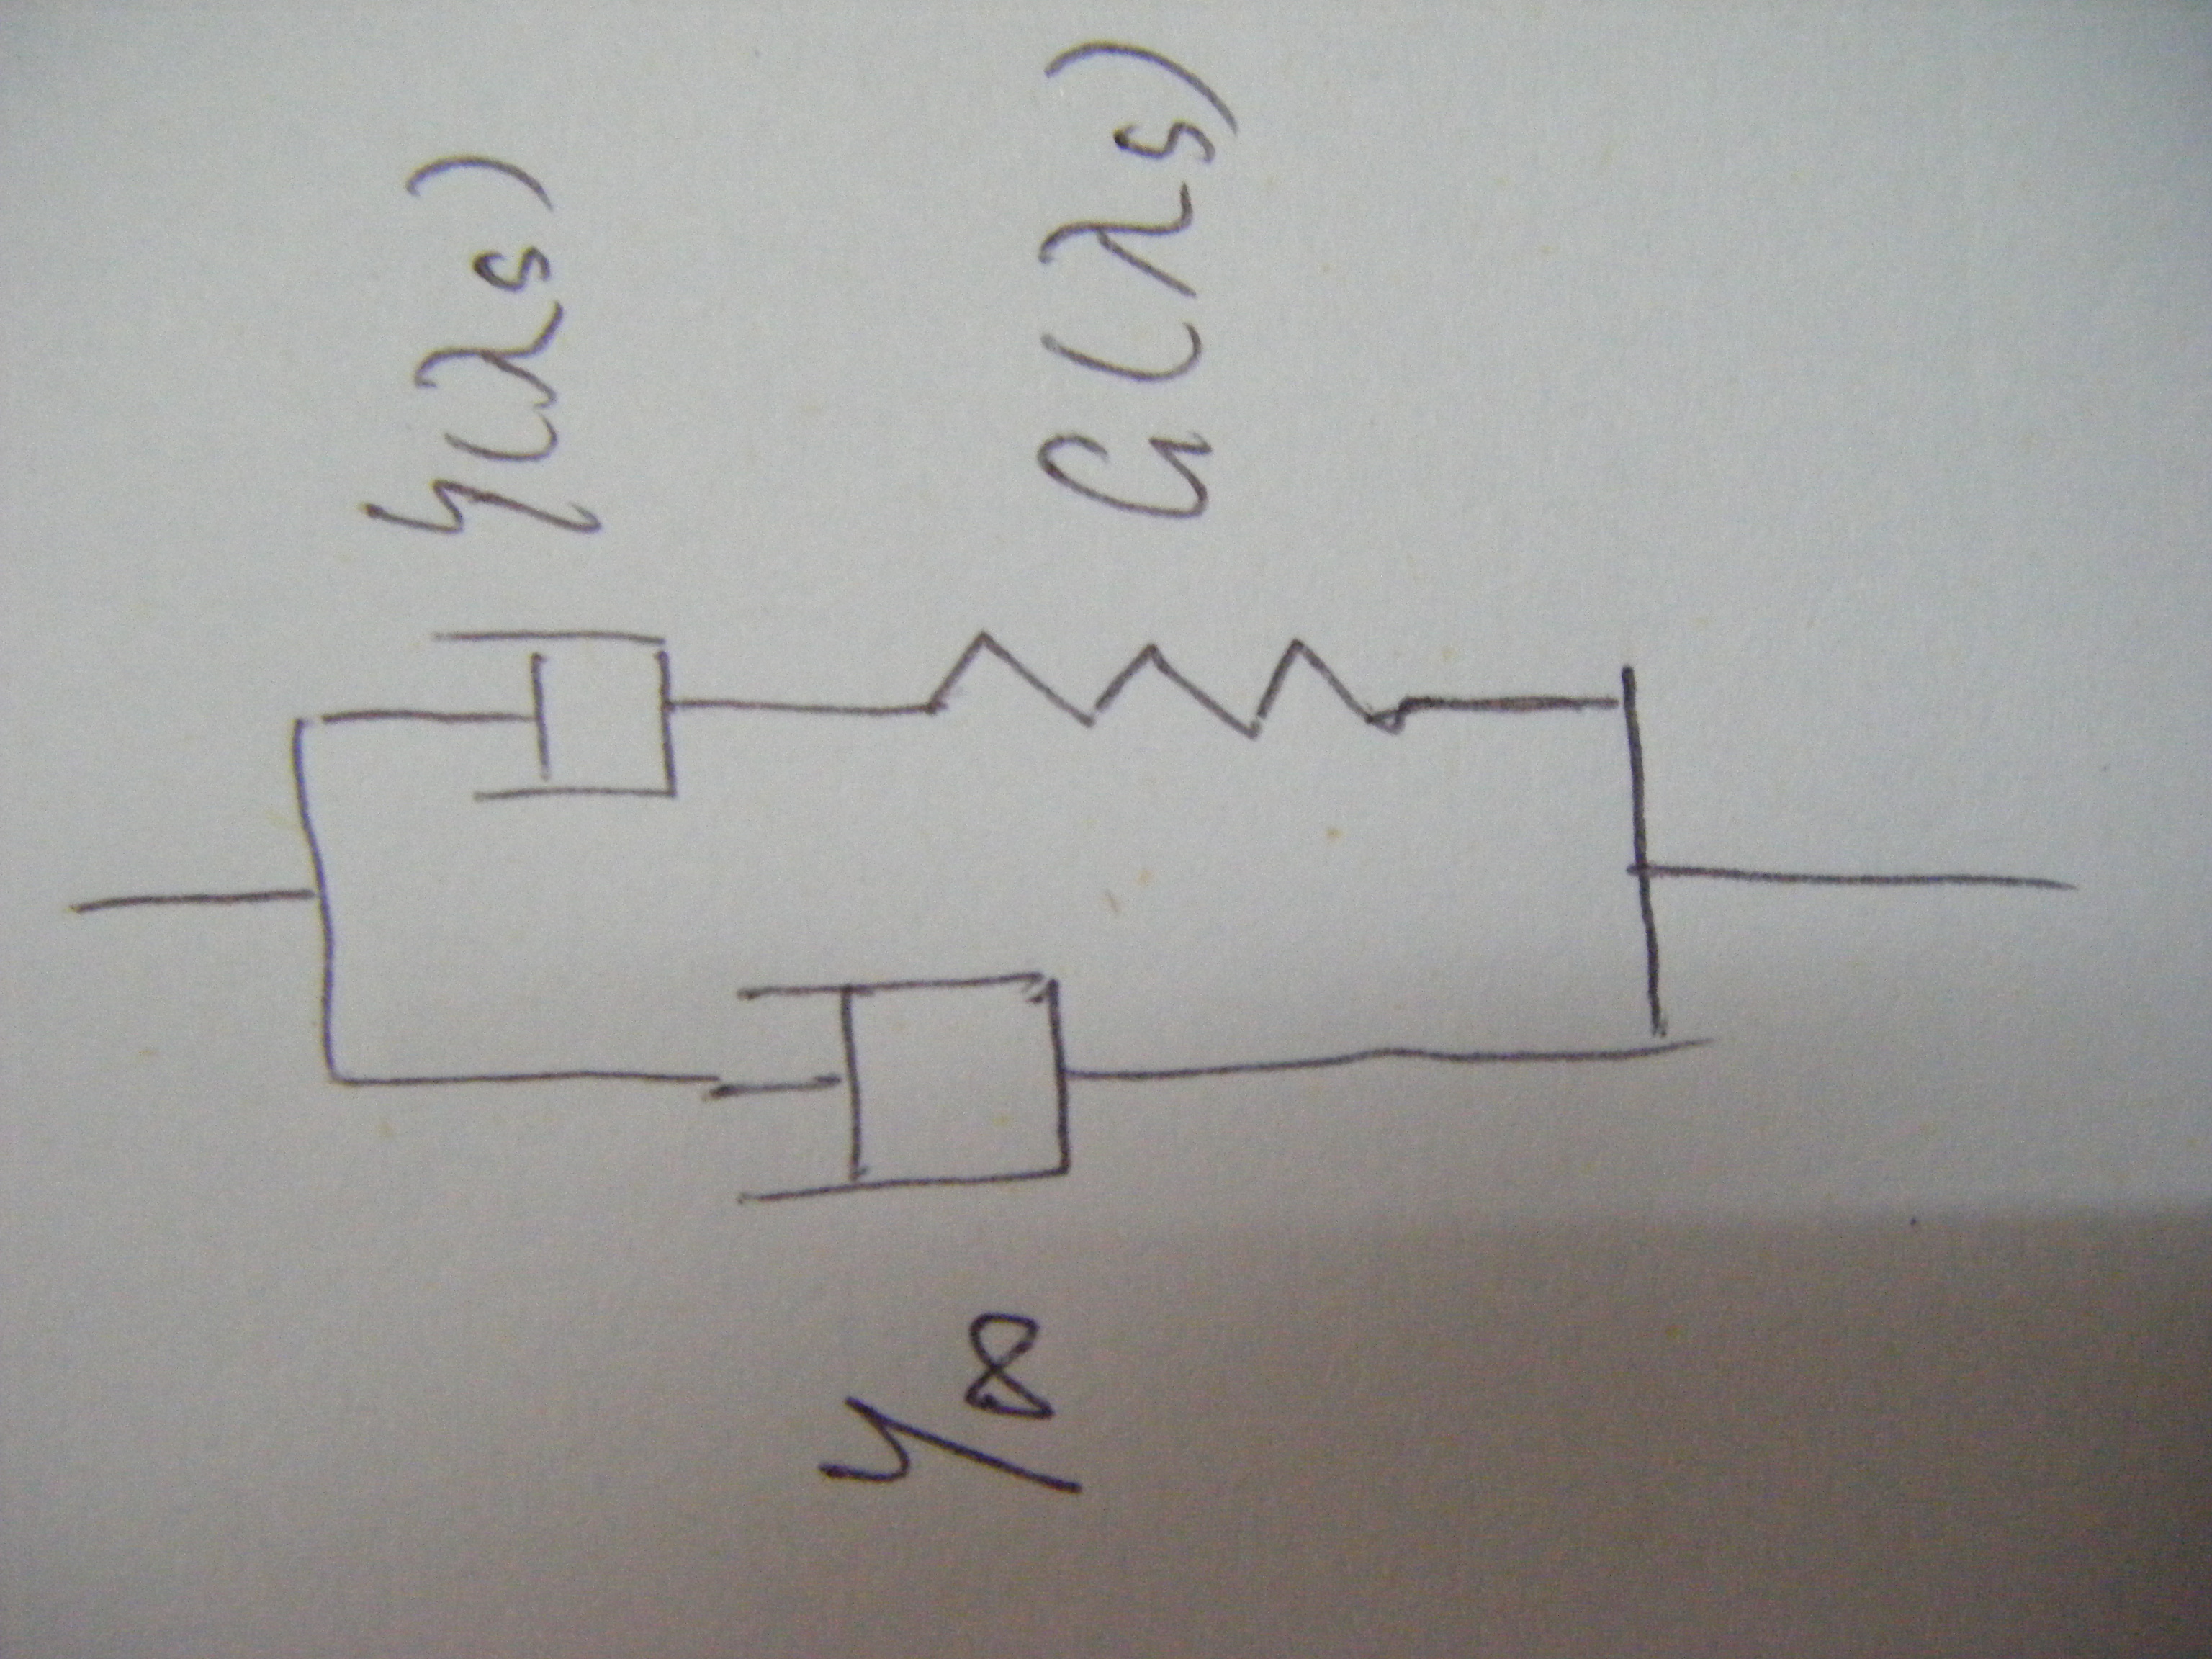 η(λs)
G(λs)
η∞